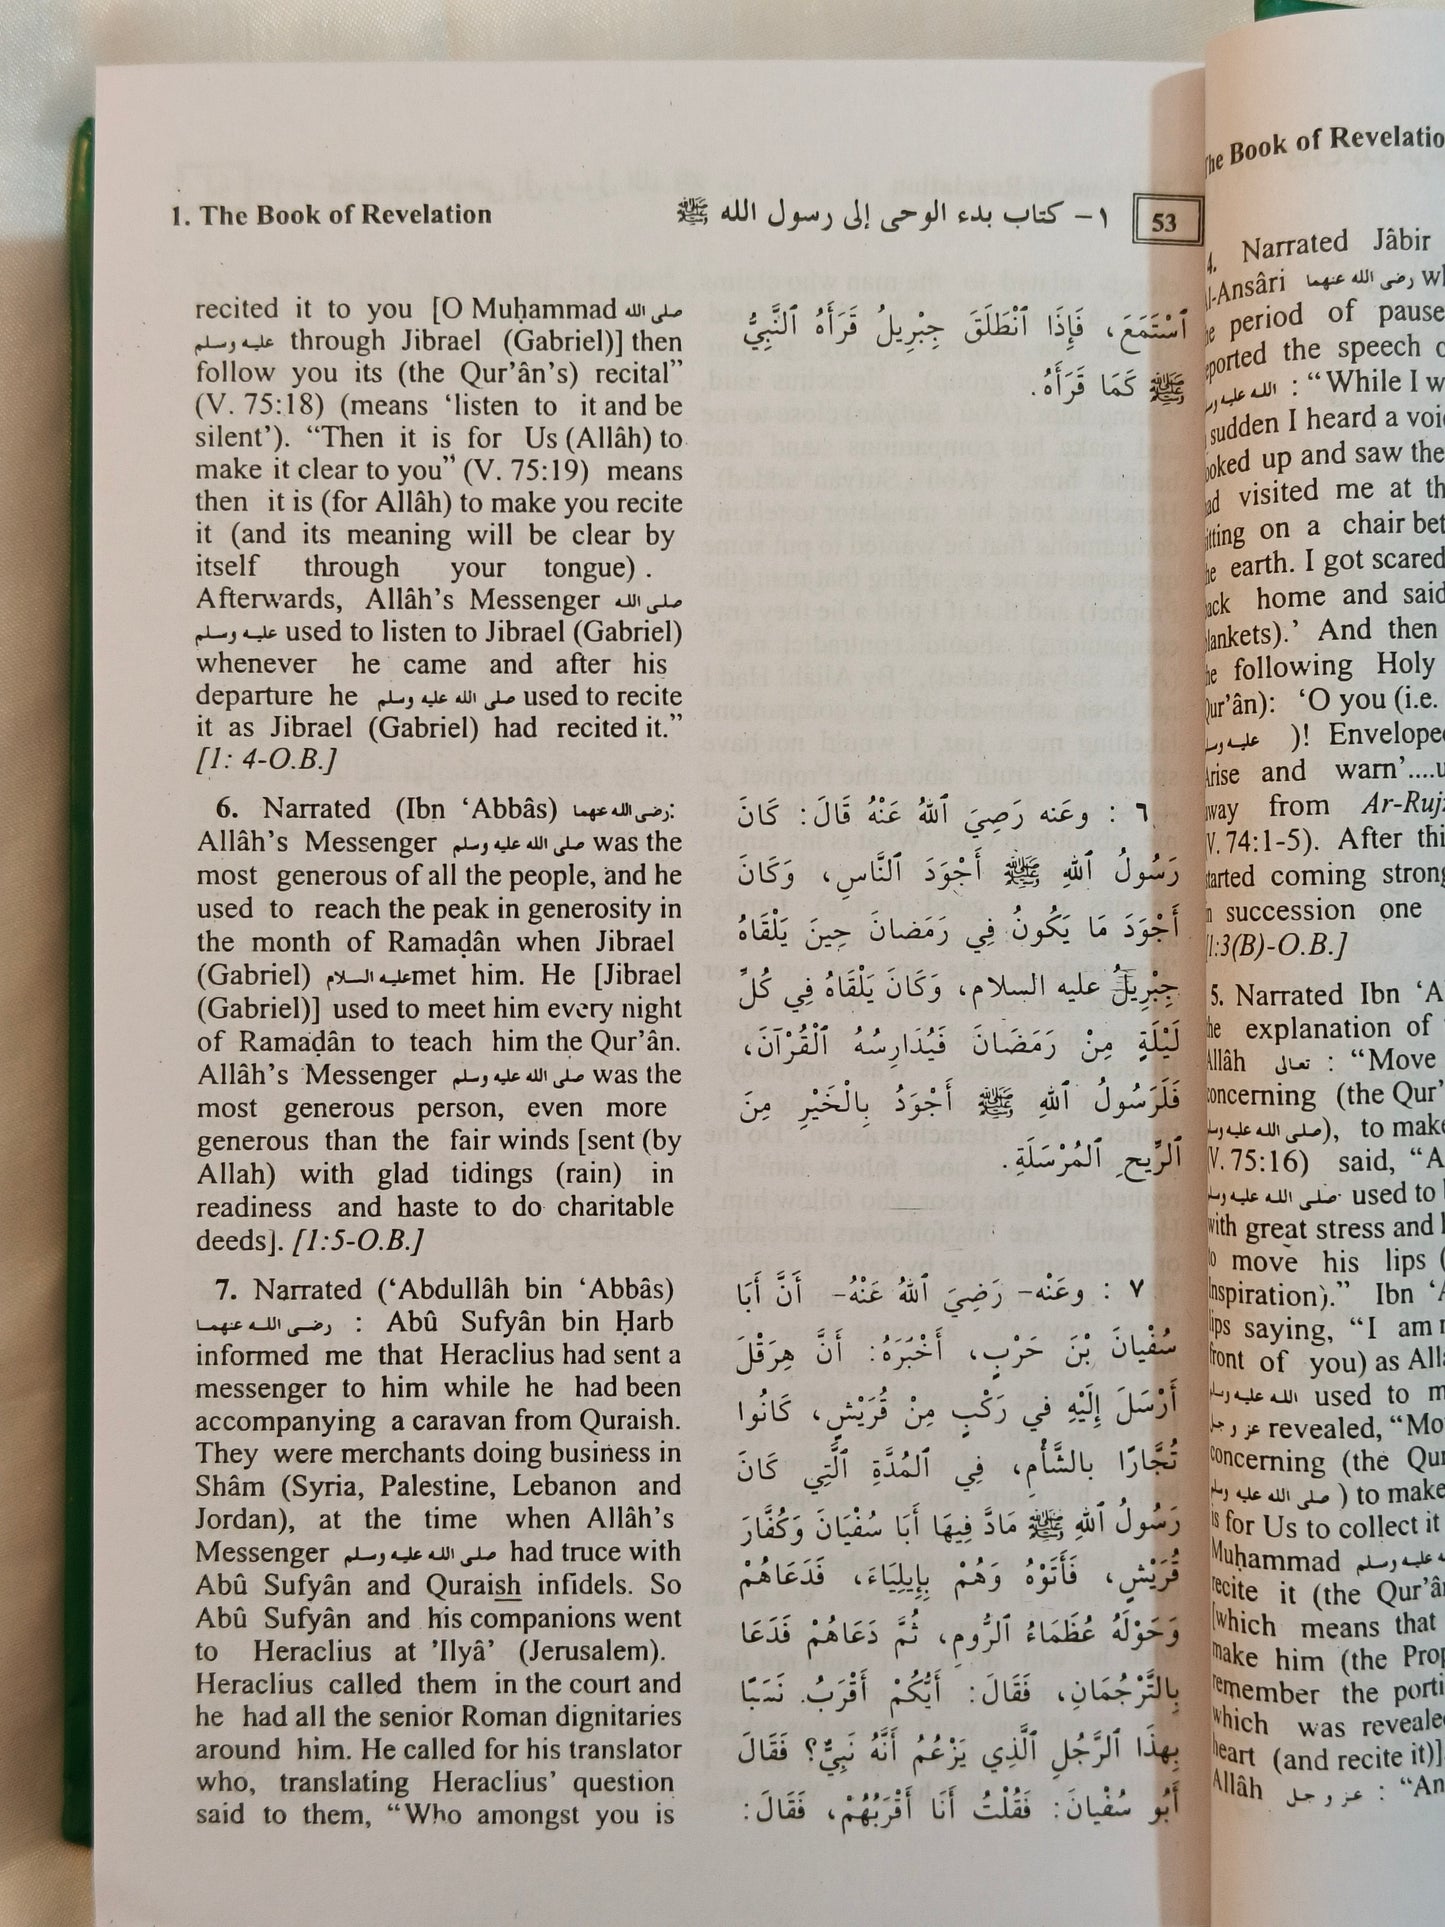 1. The Book of Revelation
١ – كتاب بدء الوحى إلى رسول الله ﷺ
53
recited it to you [O Muḥammad صلى الله
عليه وسلم through Jibrael (Gabriel)] then
follow you its (the Qur’ân’s) recital”
(V. 75:18) (means ‘listen to it and be
silent’). “Then it is for Us (Allâh) to
make it clear to you” (V. 75:19) means
then it is (for Allâh) to make you recite
it (and its meaning will be clear by
itself through your tongue) .
Afterwards, Allâh’s Messenger صلى الله
عليه وسلم used to listen to Jibrael (Gabriel)
whenever he came and after his
departure he صلى الله عليه وسلم used to recite
it as Jibrael (Gabriel) had recited it.”
[1: 4-O.B.]
6. Narrated (Ibn ‘Abbâs) رضى الله عنهما:
Allâh’s Messenger صلى الله عليه وسلم was the
most generous of all the people, and he
used to reach the peak in generosity in
the month of Ramaḍân when Jibrael
(Gabriel) عليه السلام met him. He [Jibrael
(Gabriel)] used to meet him every night
of Ramaḍân to teach him the Qur’ân.
Allâh’s Messenger صلى الله عليه وسلم was the
most generous person, even more
generous than the fair winds [sent (by
Allah) with glad tidings (rain) in
readiness and haste to do charitable
deeds]. [1:5-O.B.]
7. Narrated (‘Abdullâh bin ‘Abbâs)
رضى الله عنهما : Abû Sufyân bin Ḥarb
informed me that Heraclius had sent a
messenger to him while he had been
accompanying a caravan from Quraish.
They were merchants doing business in
Shâm (Syria, Palestine, Lebanon and
Jordan), at the time when Allâh’s
Messenger صلى الله عليه وسلم had truce with
Abû Sufyân and Quraish infidels. So
Abû Sufyân and his companions went
to Heraclius at ’Ilyâ’ (Jerusalem).
Heraclius called them in the court and
he had all the senior Roman dignitaries
around him. He called for his translator
who, translating Heraclius’ question
said to them, “Who amongst you is
ٱسْتَمَعَ، فَإِذَا ٱنْطَلَقَ جِبْرِيلُ قَرَأَهُ ٱلنَّبِيُّ
ﷺ كَمَا قَرَأَهُ.
٦ : وعَنه رَضِيَ ٱللهُ عَنْهُ قَالَ: كَانَ
رَسُولُ ٱللهِ ﷺ أَجْوَدَ ٱلنَّاسِ، وَكَانَ
أَجْوَدَ مَا يَكُونُ فِي رَمَضَانَ حِينَ يَلْقَاهُ
جِبْرِيلُ عليه السلام، وَكَانَ يَلْقَاهُ فِي كُلِّ
لَيْلَةٍ مِنْ رَمَضَانَ فَيُدَارِسُهُ ٱلْقُرْآنَ،
فَلَرَسُولُ ٱللهِ ﷺ أَجْوَدُ بِالْخَيْرِ مِنَ
ٱلرِّيحِ ٱلمُرْسَلَةِ.
٧ : وعَنْه- رَضِيَ ٱللهُ عَنْهُ- أَنَّ أَبَا
سُفْيانَ بْنَ حَرْبٍ، أَخْبَرَهُ: أَنَّ هِرَقْلَ
أَرْسَلَ إِلَيْهِ في رَكْبٍ مِنْ قُرَيْشٍ، كَانُوا
تُجَّارًا بالشَّأْمِ، فِي ٱلمُدَّةِ ٱلَّتِي كَانَ
رَسُولُ ٱللهِ ﷺ مَادَّ فِيهَا أَبَا سُفْيَانَ وَكُفَّارَ
قُرَيْشٍ، فَأَتَوْهُ وَهُمْ بِإِيلِيَاءَ، فَدَعَاهُمْ
وَحَوْلَهُ عُظَمَاءُ ٱلرُّومِ، ثُمَّ دَعَاهُمْ فَدَعَا
بِالتَّرْجُمَانِ، فَقَالَ: أَيُّكُمْ أَقْرَبُ نَسَبًا
بِهٰذَا ٱلرَّجُلِ ٱلَّذِي يَزْعُمُ أَنَّهُ نَبِيٌّ؟ فَقَالَ
أَبُو سُفْيَانَ: فَقُلْتُ أَنَا أَقْرَبُهُمْ، فَقَالَ:
Book of Revelatio
4. Narrated Jâbir
l-Ansâri رضى الله عنهما
period of pause
ported the speech
الله عليه : “While I w
sudden I heard a voi
oked up and saw the
visited me at th
itting on a chair bet
earth. I got scared
ack home and said
lankets).’ And then
following Holy
Qur’ân): ‘O you (i.e.
عليه )! Envelope
Arise and warn’....u
way from Ar-Ruj
V. 74:1-5). After thi
tarted coming strong
succession one
[1:3(B)-O.B.]
5. Narrated Ibn ‘A
explanation of
Allâh تعالى : “Move
oncerning (the Qur’
صلى الله عليه), to make
V. 75:16) said, “A
صلى الله عليه used to
with great stress and
move his lips (
nspiration).” Ibn ‘A
lips saying, “I am
front of you) as Alla
الله عليه used to m
عز و جل revealed, “Mo
concerning (the Qur
صلى الله عليه ) to make
is for Us to collect it
Muḥammad عليه وسلم
recite it (the Qur’â
[which means that
make him (the Prop
remember the porti
which was reveale
heart (and recite it)]
Allâh عز و جل : “An